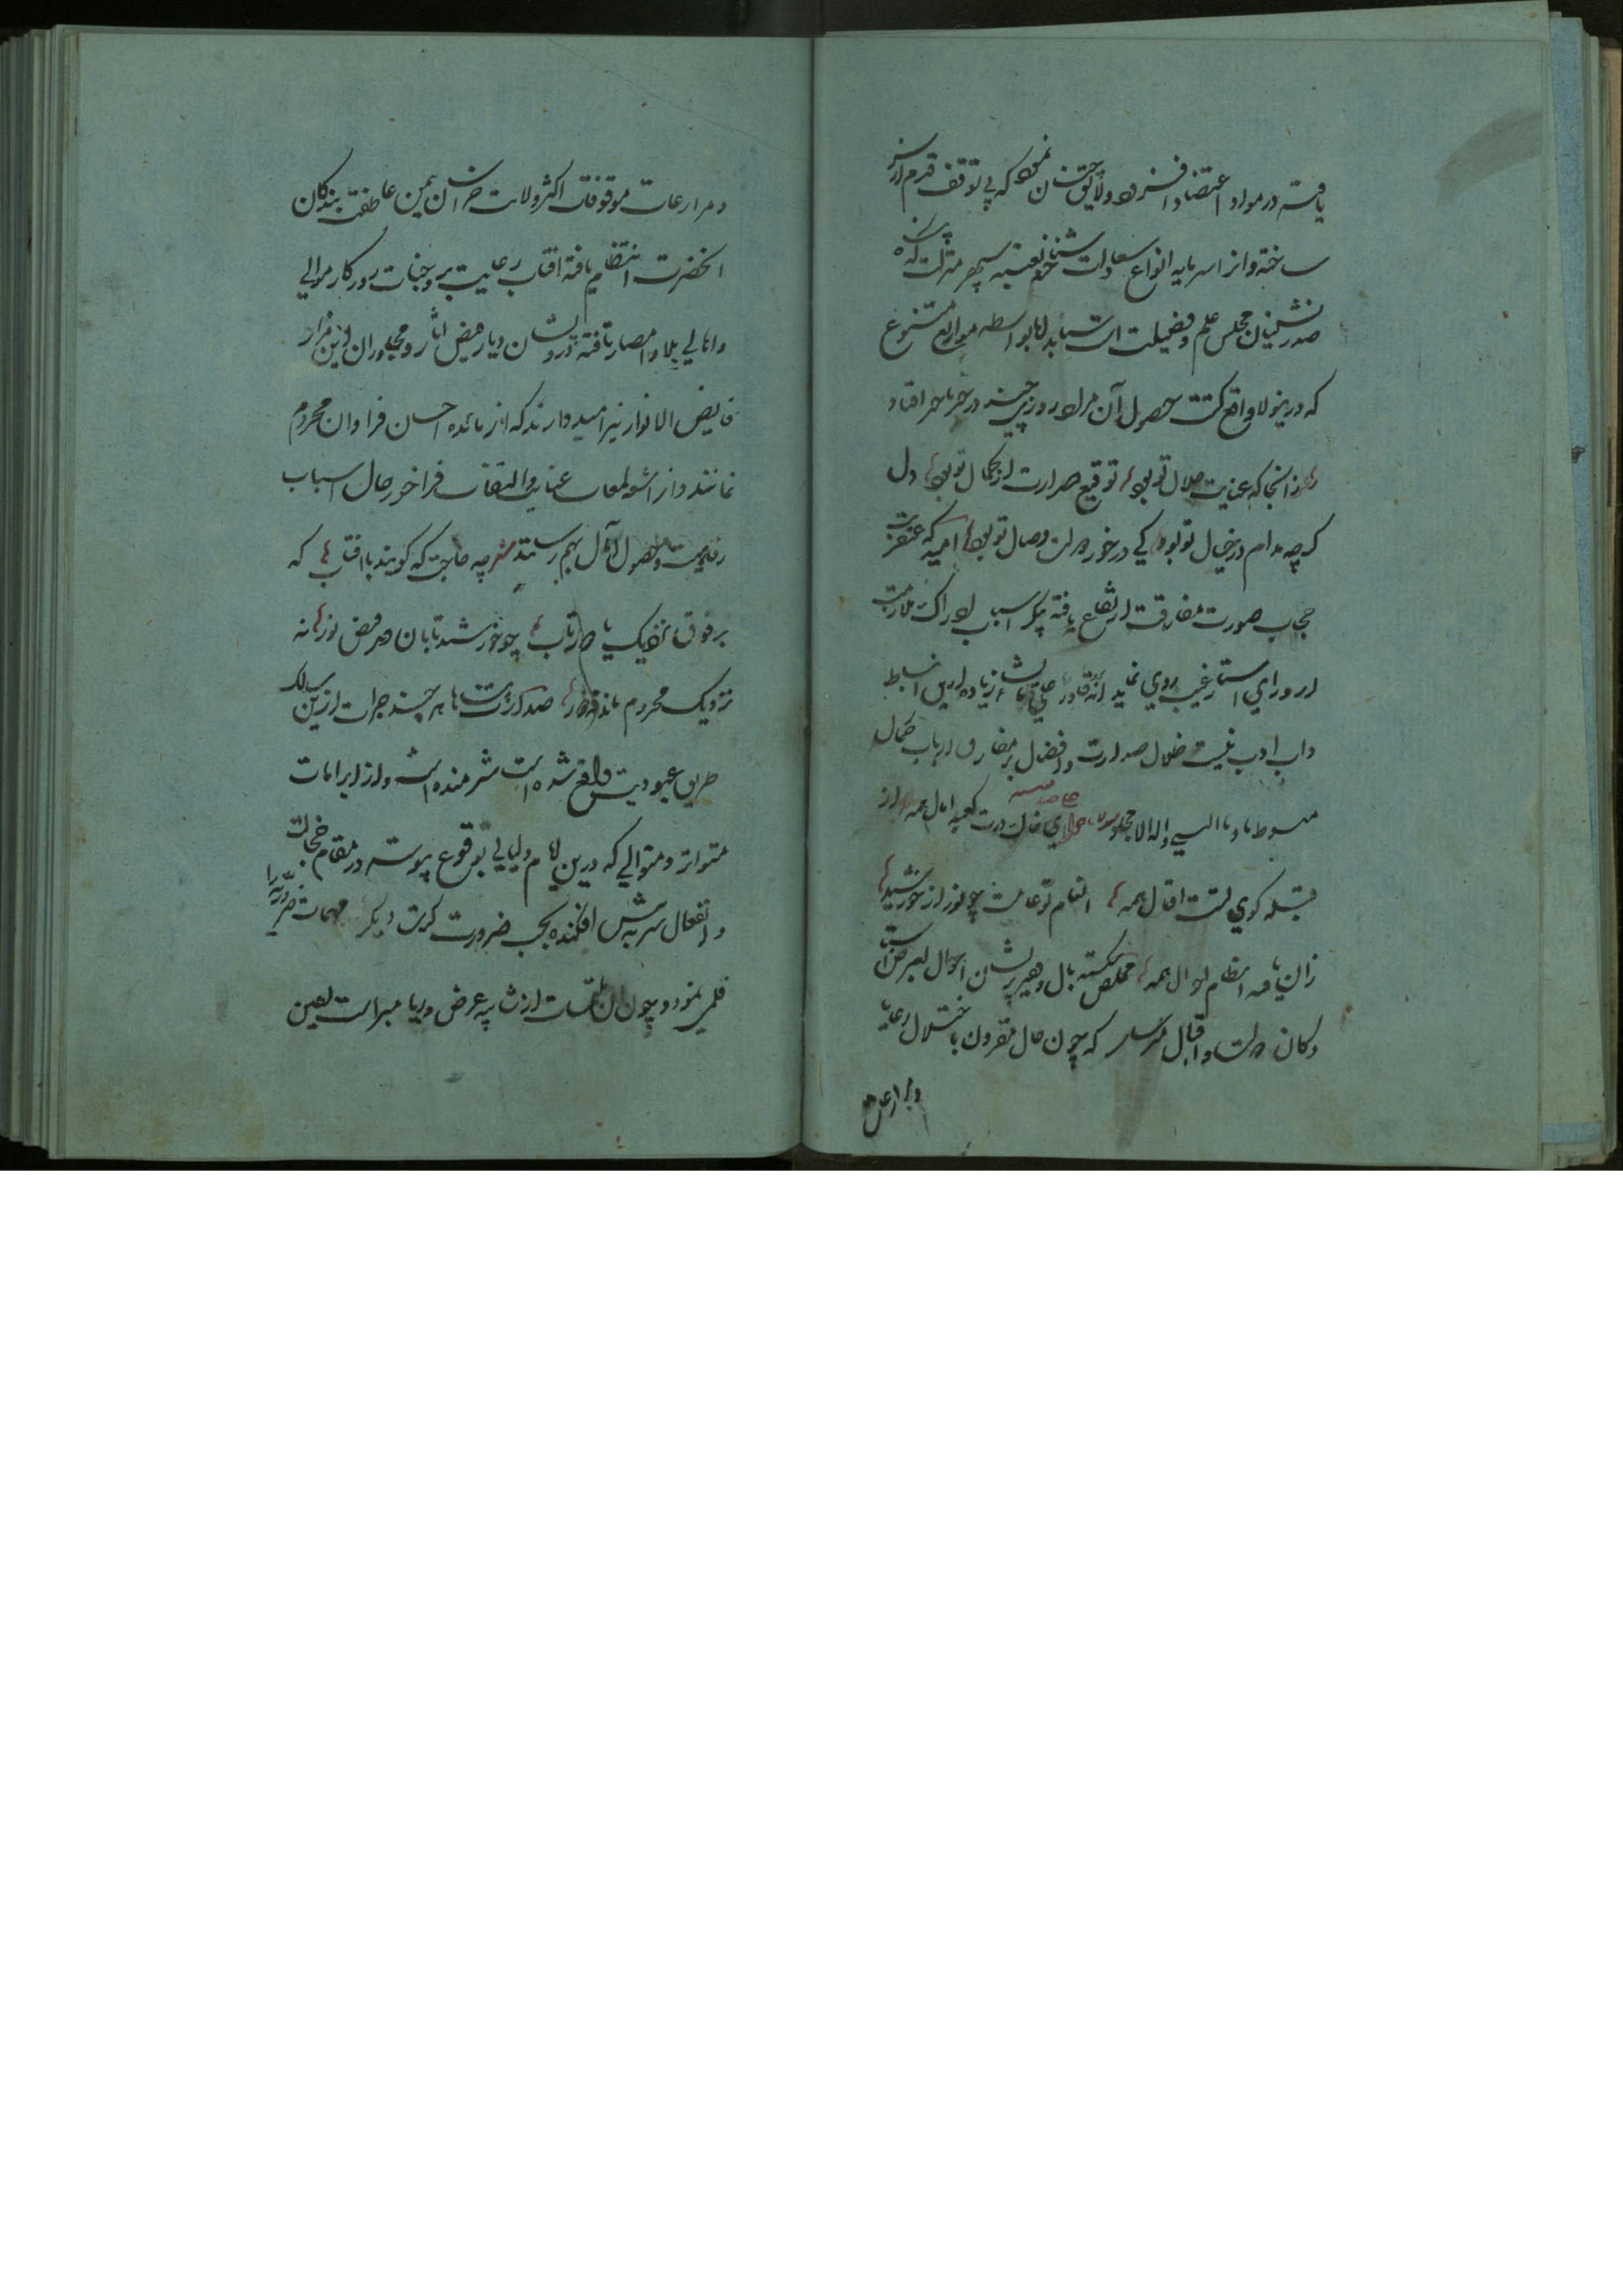 یافته در مواد اعتضاد افزود و لایق چنان نمود که بی توقف قدم از سر
ساخته و از سرمایه انواع سعادت شناخته بعتبه سپهر منزلت که
صدرنشینان مجلس علم و فضیلت است شتابد اما بواسطه موانع متنوع
که درینولا واقع کشت حصول آن مراد روزی چند در حیز تاخیر افتاد
از آنجا که عنایت جلال تو بود توقیع صدارت از کمال تو بود دل
کرچه مدام در خیال تو بود کی در خور دولت وصال تو بود امید که عنقریب
حجاب صورت مفارقت ارتفاع یافته پیکر اسباب ادراک ملازمت
از ورای استار غیب روی نماید انه قادر علی ما یشاء زیاده ازین انبساط
داب ادب نیست ظلال صدارت و افضال بر مفارق ارباب کمال
مبسوط باد بالنبی و اله الامجاد ای خاک درت کعبه امال همه
قبله کوی تست اقبال همه انعام تو عامست چو نور از خورشید
زان یافته انتظام احوال همه مخلص شکسته بال و فقیر پریشان احوال بعرض
دولت و اقبال میرساند که چون حال مقرون باختلال رعایا
و مزارعان
و مزارعات موقوفات اکثر ولایت خراسان بیمن عاطفت بندکان
انحضرت انتظام یافته افتاب رعایت بر وجنات روزکار موالی
و اهالی بلاد و امصار تافته درویشان دیار فیض اثار و مجاوران این مزار
فایض الانوار نیز امیدوارند که از مائده احسان فراوان محروم
نمانند و از اشعه لمعات عنایت و التفات فراخور حال اسباب
رفاهیت و حصول آمال بهم رسانند چه حاجت که کویند با افتاب که
بر فوق نزدیک یا دور تاب چو خورشید تابان دهد فیض نور نه
نزدیک محروم ماند نه دور صدارت پناها هر چند جرات ازین سالک
طریق عبودیت واقع شده است شرمنده است و از ابرامات
متواتر و متوالی که درین ایام و لیالی بوقوع پیوسته در مقام خجالت
و انفعال سر به پیش افکنده بحسب ضرورت کرت دیکر مهمات ضروریه را
قلمی نمود و چون آن ملتمسات از شایبه عرض و ریا مبراست یقین